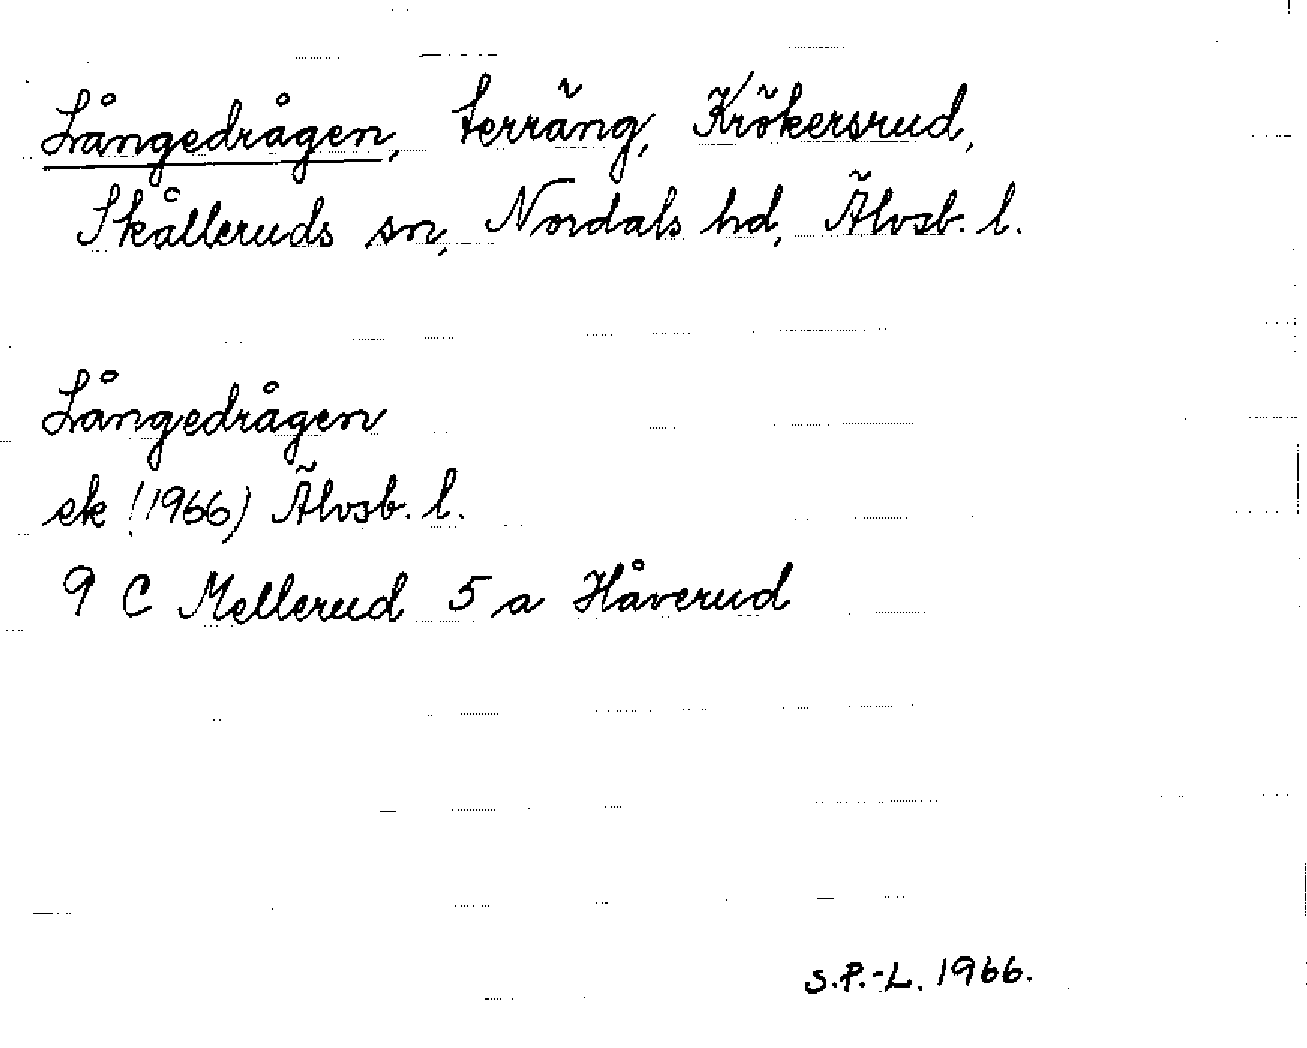 Långedrågen, terräng, Krökersrud,
Skålleruds sn, Nordals hd, Älvsb. l.
Långedrågen
ek (1966) Älvsb. l.
9 C Mellerud 5 a Håverud
S.P.-L. 1966.